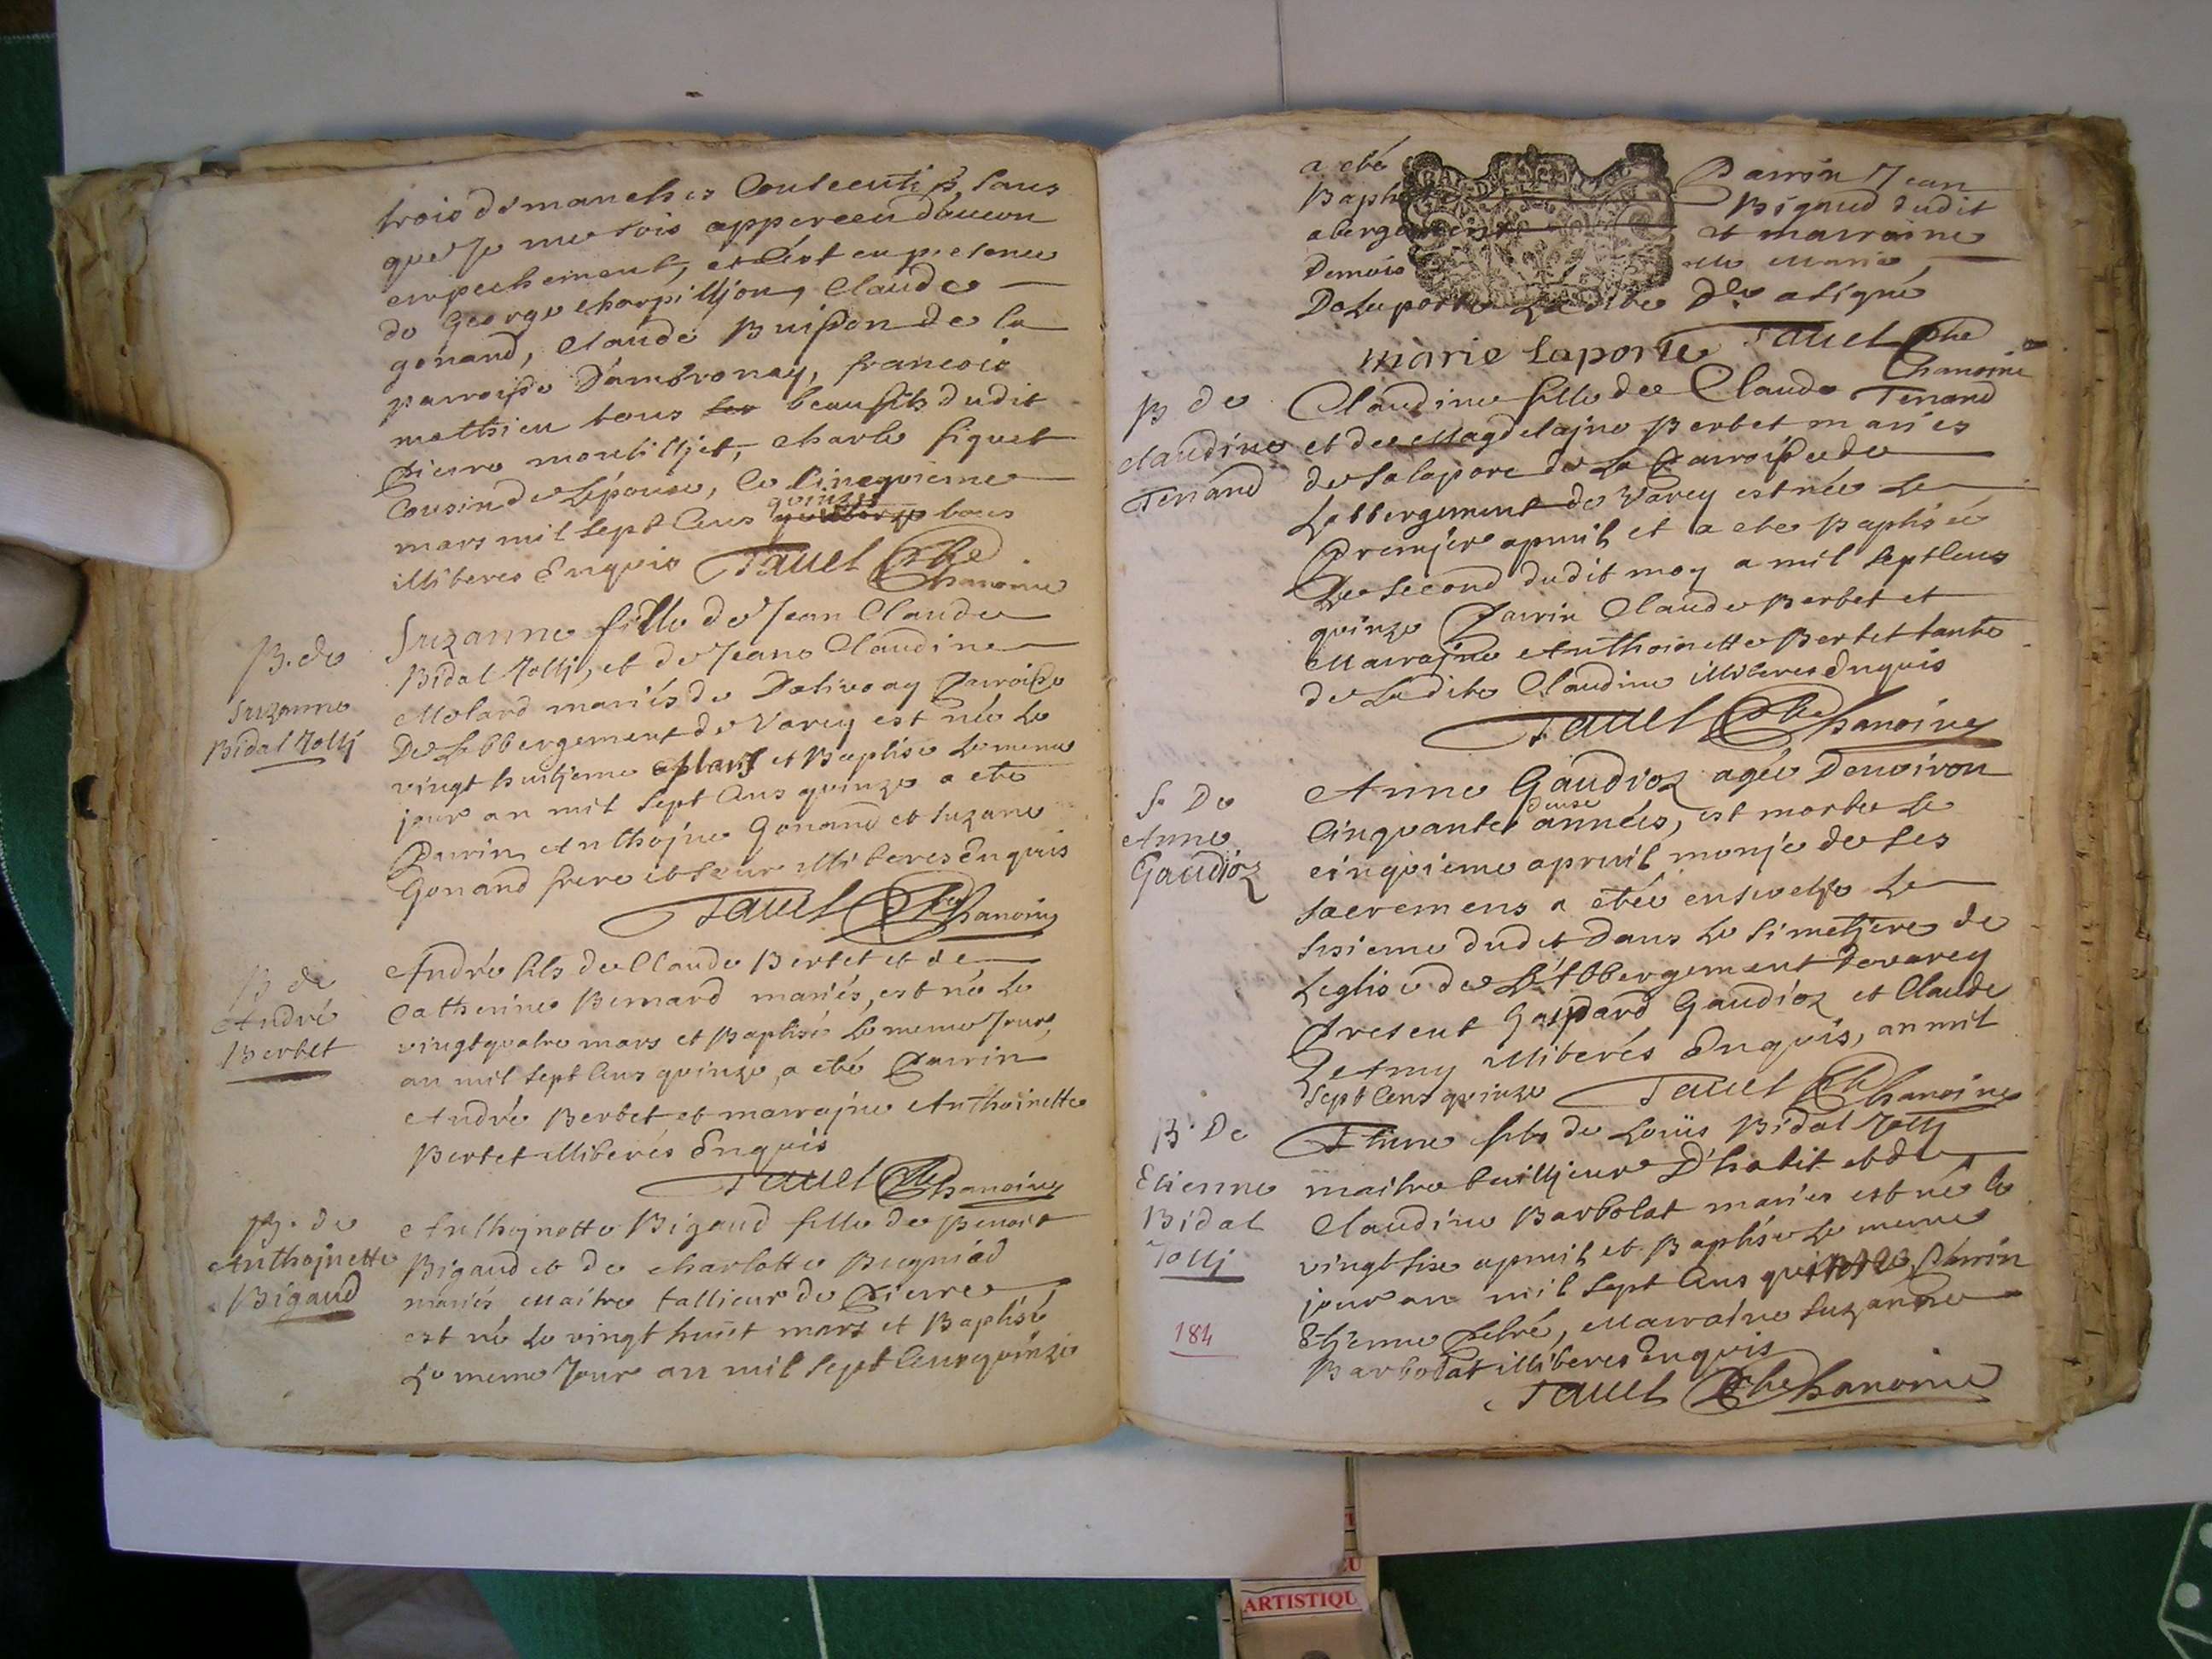 trois dimanches consecutifs sans
que Je me sois apperceu d'aucun
empechement, et cest en presence
de George charpilljon, Claude
gonand, Claude Buisson de la
parroisse D'ambronay, francois
mathieu tous beaufils dudit
pierre moutilljet, charle figuet
Cousin de Lépouse, le Cinequieme
quinze
mars mil sept Cens tous
illiberes Enquis Tavel pbre
Chanoine
B. de
Suzanne
Bidal Jollj
Suzanne fille de Jean Claude
Bidal Jollj, et de Jeane Claudine
Molard mariés de Dalivoay Parroisse
De Labbergement de Varey est née Le
vingt huitjeme mars et Baptisée Le meme
jour an mil sept Cens quinze a ete
Parrin Anthojne Gonand et Suzane
Gonand frere et seur illiberes Enquis
Tavel pbre Chanoine
B de
André
Berbet
André fils de Claude Berbet et de
Catherine Bernard mariés, est né Le
vingtquatre mars et Baptisé Le meme Jour,
an mil sept Cens quinze, a eté Parrin
André Berbet et marrajne Anthoinette
Berbet illiberés Enquis
Tavel pbre Chanoine
B. de
Anthojnette
Bigaud
Anthojnette Bigaud fille de Benoit
Bigaud et de charlotte Bugniad
mariés Maitre tallieur de Pierre
est né Le vingt huit mars et Baptisé
Le meme Jour an mil sept Cens quinze
a eté Parrin Jean
Bapt Bigaud dudit
abergement et marraine
Demois elle Marie
De Laporte La dite Dlle a signé
marie Laporte Tavel pbre
Chanoine
B de
Claudine
Tenand
Claudine fille de Claude Tenand
et de Magdelajne Berbet mariés
de Salapore de La Parroisse de
Labbergement de Varey est née Le
Premjere apvril et a ete Baptisée
Le second dudit moy a mil sept Cens
quinze Parrin Claude Berbet et
Marrajne Anthoinette Berbet tante
de La dite Claudine illiberes Enquis
Tavel pbre Chanoine
S. De
Anne
Gaudioz
Anne Gaudioz agée Denviron
deuse
Cinquante années, est morte Le
cinquieme apvril munje de ses
sacremens a etée ensevelje Le
sisieme dudit Dans Le simetjere de
Leglise de L'Abbergement de varey
Present Gaspard Gaudioz et Claude
Lamy illiberés Enquis, an mil
sept Cens quinze Tavel pbre Chanoine
B. De
Etienne
Bidal
Jollj
184
Etienne fils de Loüis Bidal Jollj
maitre tailljeur D'habit et de
Claudine Barbolat mariés est né le
vingt sixe apvril et Baptisé Le meme
jour an mil sept Cens quinze Parrin
Etjenne Febré, Marraine Suzanne
Barbolat illiberes Enquis
Tavel pbre Chanoine
ARTISTIQU